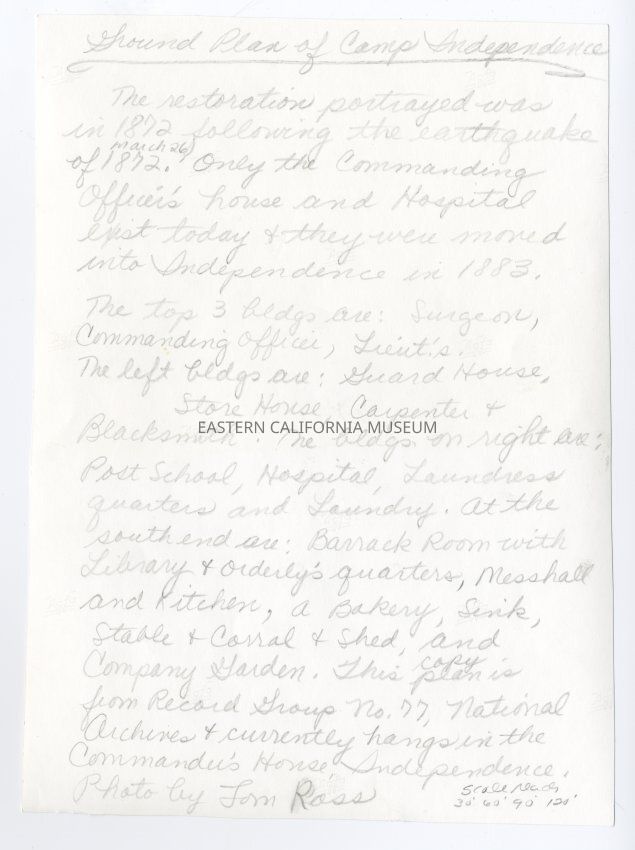 Ground Plan of Camp Independence
The restoration portrayed was
in 1872 following the earthquake
March 26,
of 1872. Only the Commanding
Officer's house and Hospital
exist today & they were moved
into Independence in 1883.
The top 3 bldgs are: Surgeon,
Commanding Officer, Lieut's.
The left bldgs are: Guard House,
Store House, Carpenter &
EASTERN CALIFORNIA MUSEUM
Blacksmith. The bldgs on right are:
Post School, Hospital, Laundress
quarters and Laundry. At the
south end are: Barrack Room with
Library & Orderly's quarters, Messhall
and Kitchen, a Bakery, Sink,
Stable & Corral & Shed, and
copy
Company Garden. This plan is
from Record Group No. 77, National
Archives & currently hangs in the
Commander's House, Independence.
Photo by Tom Ross
Scale reads
30' 60' 90' 120'